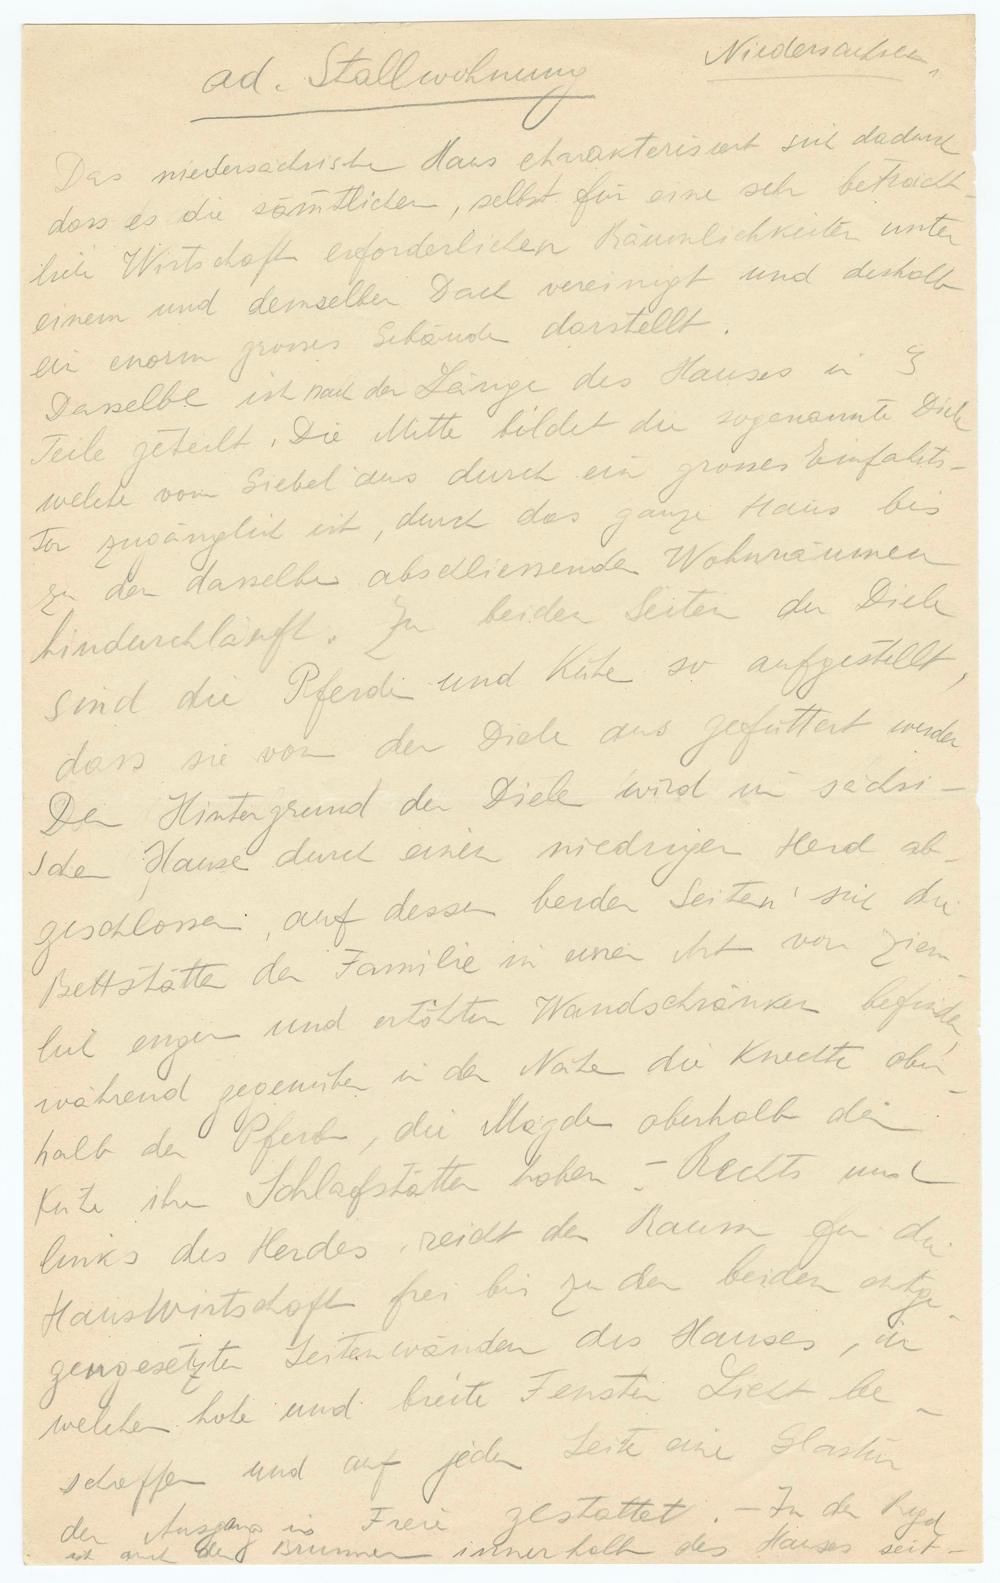 ad. Stallwohnung
Niedersachsen.
Das niedersächsische Haus charakterisiert sich dadurch
dass es die sämtlichen, selbst für eine sehr beträcht-
liche Wirtschaft erforderlichen Räumlichkeiten unter
einem und demselben Dach vereinigt und deshalb
ein enorm grosses Gebäude darstellt.
Dasselbe ist nach der Länge des Hauses in 3
Teile geteilt. Die Mitte bildet die sogenannte Diele
welche vom Giebel aus durch ein grosses Einfahrts-
Tor zugänglich ist, durch das ganze Haus bis
zu den dasselbe abschliessenden Wohnräumen
hindurchläuft. Zu beiden Seiten der Diele
sind die Pferde und Kühe so aufgestellt,
dass sie von der Diele aus gefüttert werden
Den Hintergrund der Diele wird im sächsi-
schen Hause durch einen niedrigen Herd ab-
geschlossen, auf dessen beiden Seiten sich die
Bettstätten der Familie in einer Art von ziem-
lich engen und erhöhten Wandschränken befinden,
während gegenüber in der Nähe die Knechte ober-
halb der Pferde, die Mägde oberhalb der
Kühe ihre Schlafstätten haben. - Rechts und
links des Herdes reicht der Raum für die
Hauswirtschaft frei bis zu den beiden entge-
gengesetzten Seitenwänden des Hauses, in
welchen hohe und breite Fenster Licht be-
schaffen und auf jeder Seite eine Glastür
den Ausgang ins Freie gestattet. - In der Regel
ist auch der Brunnen innerhalb des Hauses seit-